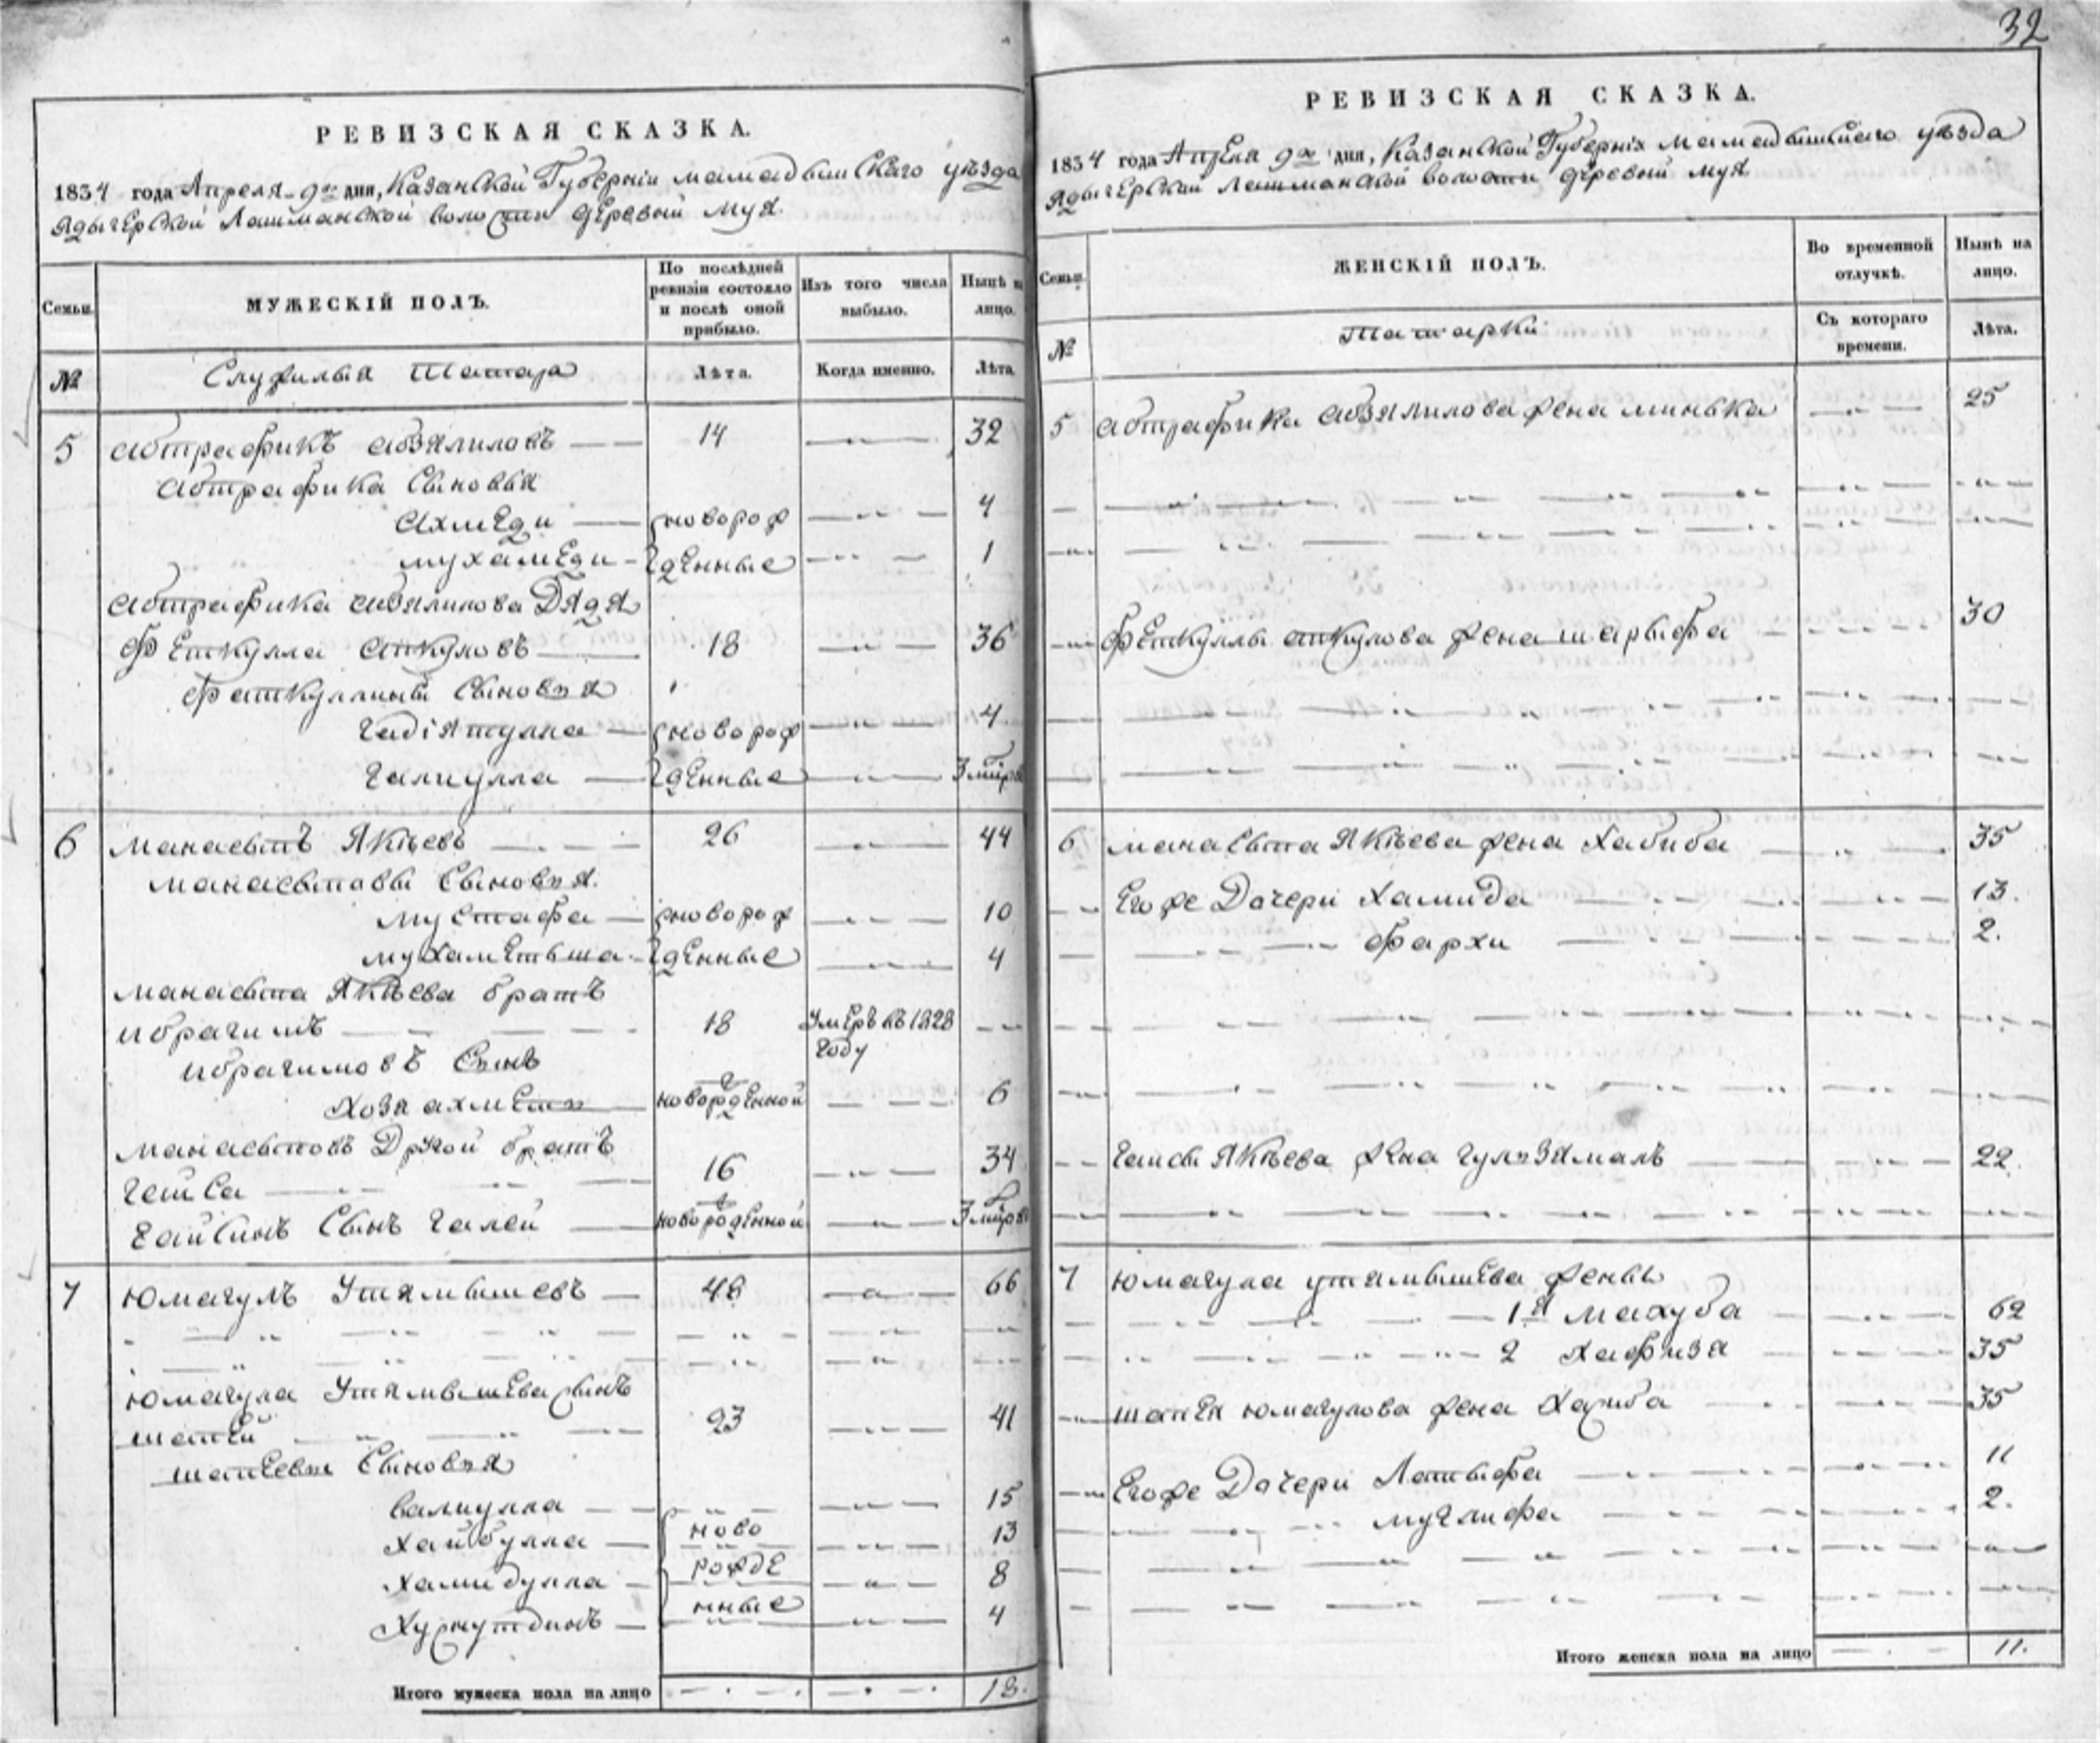 32
РЕВИЗСКАЯ СКАЗКА.
1834 года Апреля 9го дня, Казанской Губерніи мамадышскаго уѣзда
Ядыгерской Лашманской волости деревни муя.
Семьи.
МУЖЕСКІЙ ПОЛЪ.
По послѣдней ревизіи состояло и послѣ оной прибыло.
Изъ того числа выбыло.
Нынѣ на лицо.
№
Служилыя Татара
Лѣта.
Когда именно.
Лѣта
5 Абтрафикъ Абзялиловъ 14 32
Абтрафика Сыновья
Ахмеди новорож 4
мухамеди денные 1
Абтрафика абзялилова Дядя
Феткулла аткуловъ 18 36
Фаткуллины Сыновья
Гадіятулла новорож 4
Галиулла денные
6 манасыпъ Якѣевъ 26 44
манасыповы Сыновья.
мустафа новорож 10
мухаметьша денные 4
манасыпа Якѣева братъ
Ибрагимъ 18 Умеръ въ 1828 году
Ибрагимовъ Сынъ
Хозяахметъ новорожденной 6
манасыповъ Другой братъ
Гайса 16 34
Гайсинъ Сынъ Галей новорожденной
7 Юмагулъ Утямышевъ 48 66
Юмагула Утямышева сынъ
шапей 23 41
шапеевы Сыновья
валиулла 15
Хайбулла ново 13
Хамидулла рожде 8
нные 4
Итого мужеска пола на лицо 18.
РЕВИЗСКАЯ СКАЗКА.
1834 года Апреля 9го дня, Казанской Губерніи мамадышскаго уѣзда
Ядыгерской Лашманской волости деревни муя
Семьи.
ЖЕНСКІЙ ПОЛЪ.
Во временной отлучкѣ.
Нынѣ на лицо.
№
Татарки
Съ котораго времени.
Лѣта.
5 Абтрафика абзялилова жена минька 25
Феткуллы аткулова жена шарыфа 30
6 манасыпа Якѣева жена Хабиба 35
Егоже Дочери Хамида 13.
Фархи 2.
Гайсы Якѣева жена гулзямалъ 22.
7 Юмагула утямышева жены
1я махуба 62
2 Хафиза 35
шапея юмагулова жена 35
Егоже Дочери Латыфа 11
муглифа 2.
Итого женска пола на лицо 11.